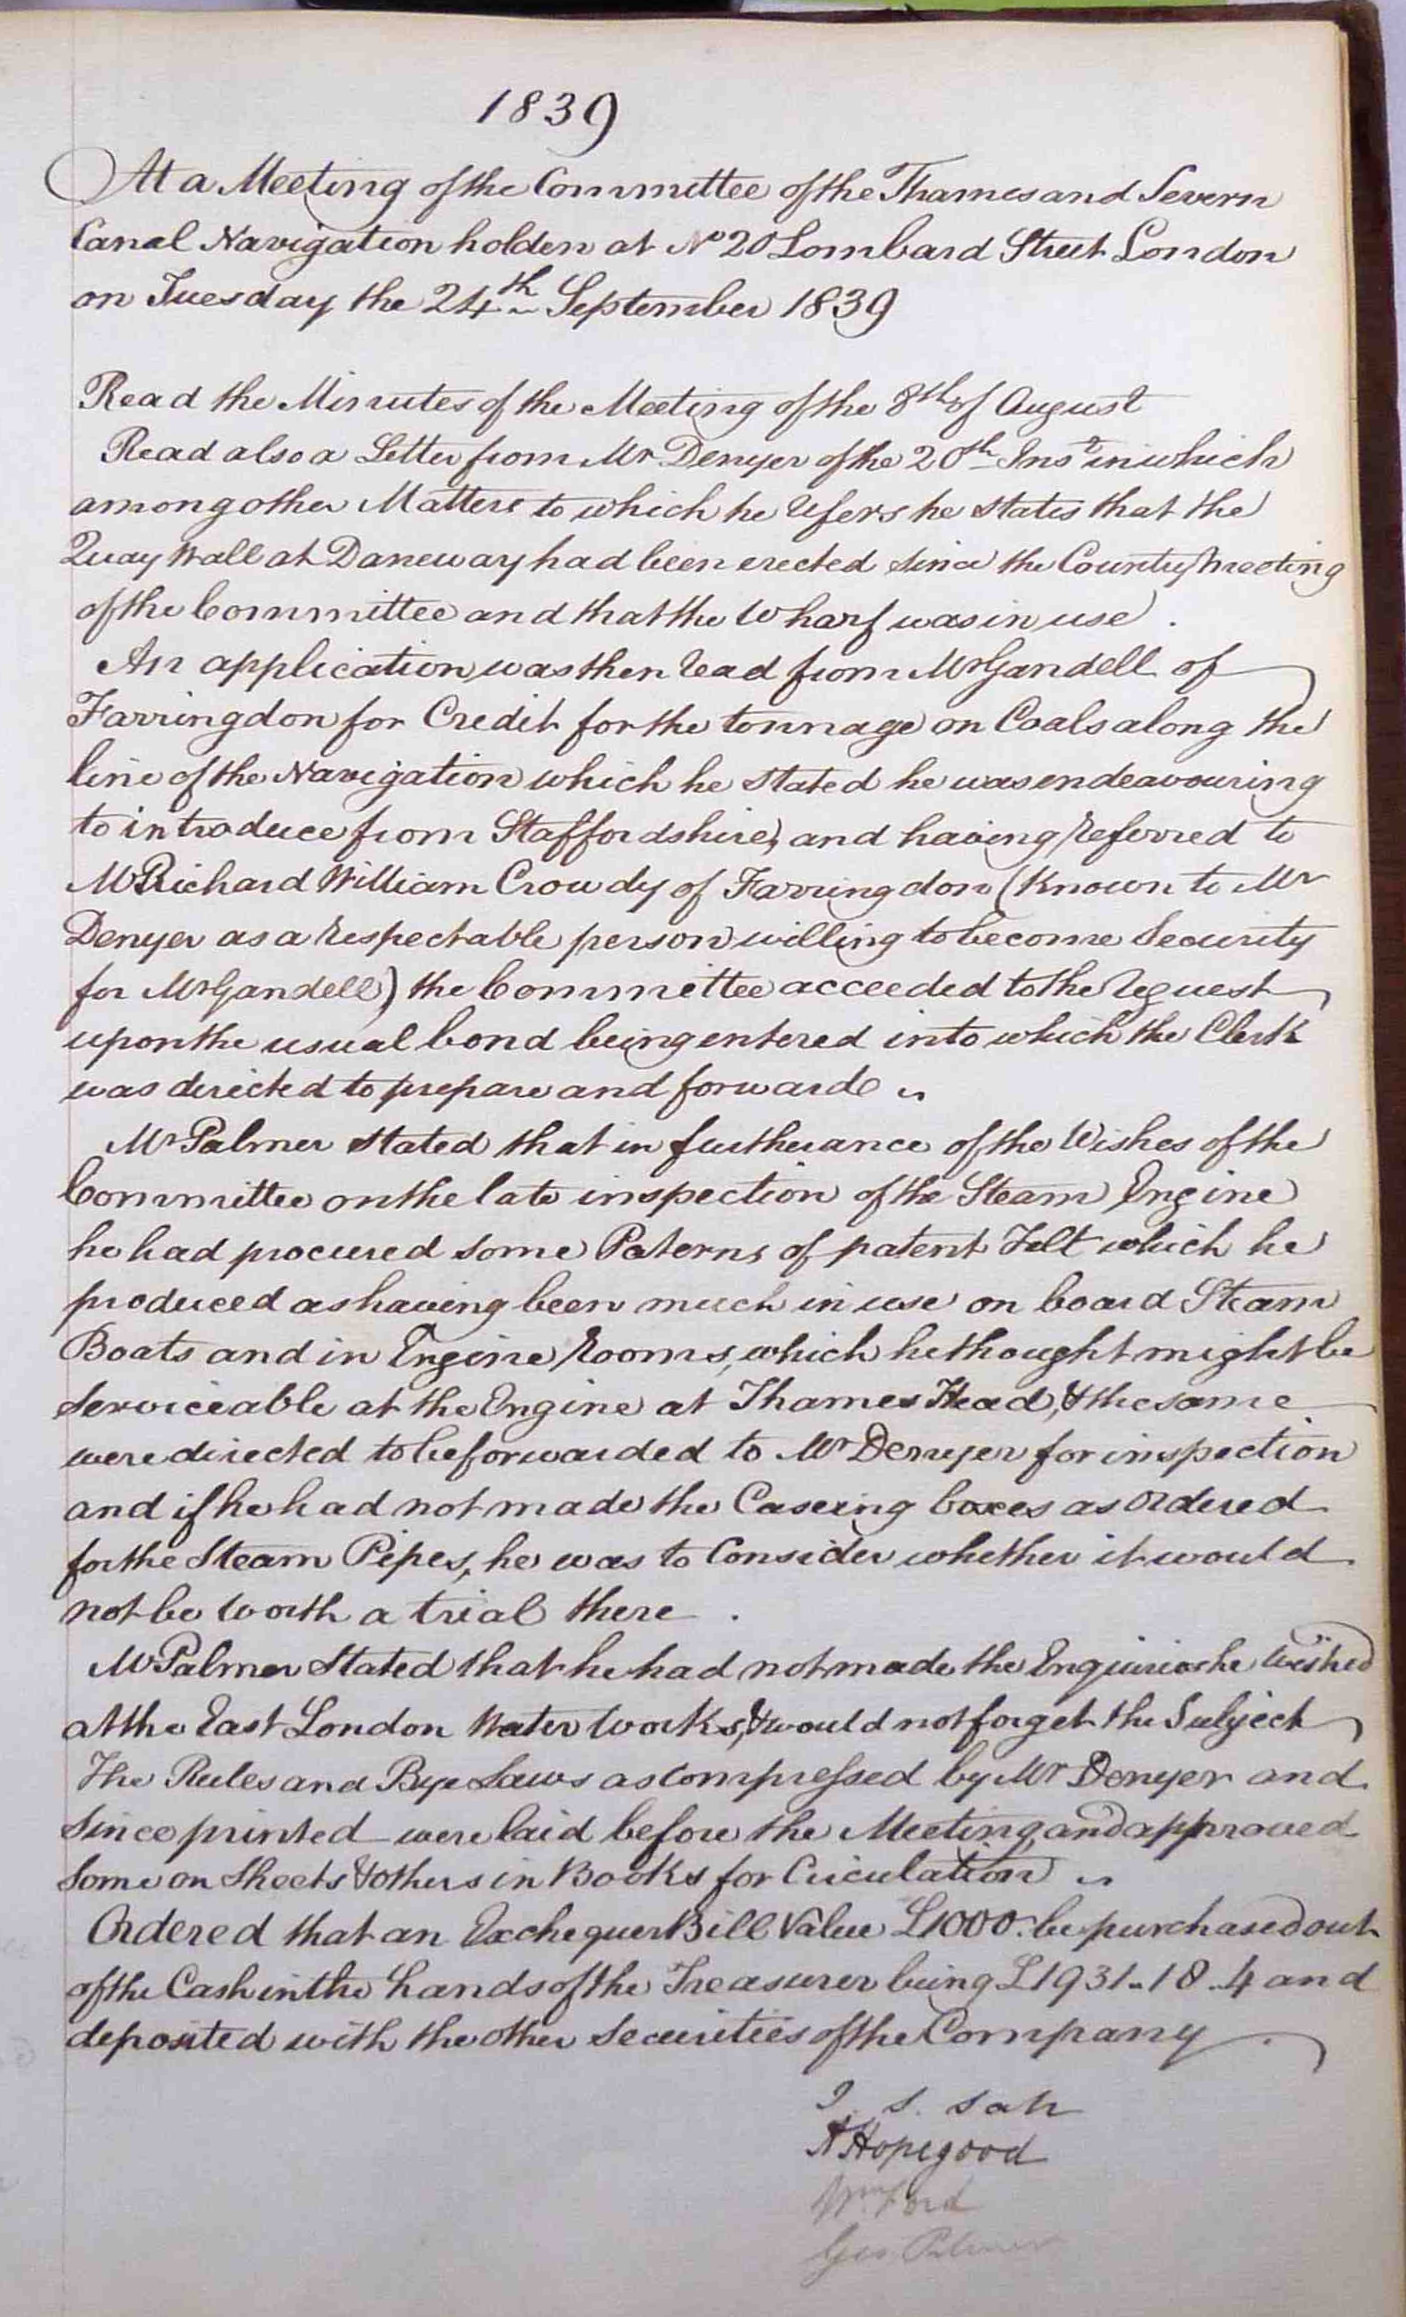 1839
At a Meeting of the Committee of the Thames and Severn
Canal Navigation holden at No 20 Lombard Street London
on Tuesday the 24th September 1839
Read the Minutes of the Meeting of the 8th of August
Read also a Letter from Mr Denyer of the 20th Inst in which
among other Matters to which he refers he states that the
Quay Wall at Daneway had been erected since the County Meeting
of the Committee and that the Wharf was in use.
An application was then read from Mr Gandell of
Farringdon for Credit for the tonnage on Coals along the
line of the Navigation which he stated he was endeavouring
to introduce from Staffordshire, and having referred to
Mr Richard William Crowdy of Farringdon (Known to Mr
Denyer as a respectable person willing to become Security
for Mr Gandell) the Committee acceeded to the request
upon the usual bond being entered into which the Clerk
was directed to prepare and forward
Mr Palmer stated that in furtherance of the Wishes of the
Committee on the late inspection of the Steam Engine
he had procured some Paterns of patent Felt which he
produced as having been much in use on board Steam
Boats and in Engine rooms, which he thought might be
Serviceable at the Engine at Thames Head, & the same
were directed to be forwarded to Mr Denyer for inspection
and if he had not made the Caseing boxes as ordered
for the Steam Pipes, he was to Consider whether it would
not be Worth a trial there.
Mr Palmer Stated that he had not made the Enquiries he wished
at the East London Water Works, & would not forget the Subject
The Rules and Bye Laws as compressed by Mr Denyer and
Since printed were laid before the Meeting, and approved
Some on Sheets & others in Books for Circulation
Ordered that an Exchequer Bill Value £1000. be purchased out
of the Cash in the hands of the Treasurer being £1931-18-4 and
deposited with the other Securities of the Company.
Hopegood
Wm Ford
Geo Palmer